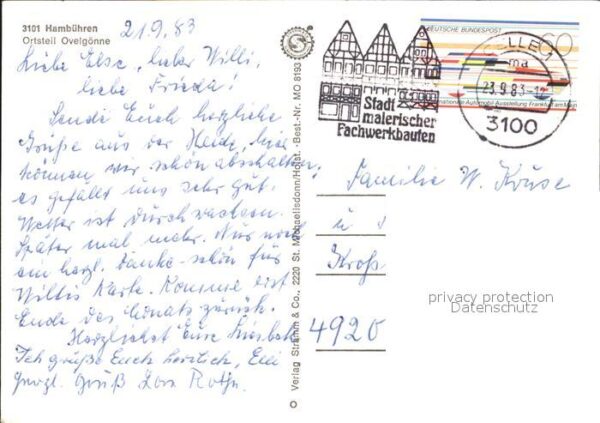 3101 Hambühren
Ortsteil Ovelgönne
21.9.83
Liebe Else, lieber Willi,
liebe Frieda!
Sende Euch herzliche
Grüße aus der Heide, hier
können wir schön abschalten,
es gefällt uns sehr gut.
Wetter ist durchwachsen.
Später mal mehr. Nur noch
ein herzl. Danke-schön für
Willis Karte. Komme erst
Ende des Monats zurück.
Herzlichst Eure
Ich grüße Euch herzlich, Elli
Gruß von
Verlag Stramm & Co., 2220 St. Michaelisdonn/Holst. Best.-Nr. MO 8193
Stadt
malerischer
Fachwerkbauten
DEUTSCHE BUNDESPOST
60
Internationale Automobil-Ausstellung Frankfurt am Main
CELLE
ma
23.9.83-12
3100
Familie W. Kruse
u
Kroß
4920
privacy protection
Datenschutz